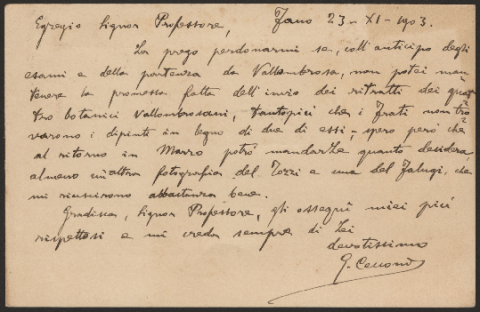 Egregio Signor Professore, Fano 23-XI-1903.
La prego perdonarmi se, coll'anticipo degli
esami e della partenza da Vallombrosa, non potei man
tenere la promessa fatta dell'invio dei ritratti dei quat
tro botanici Vallombrosani, tantopiù che i Frati non tro
varono i dipinti in legno di due di essi - spero però che
al ritorno in Marzo potrò mandarLe quanto desidera,
almeno un'altra fotografia del Tozzi e una del Falugi, che
mi riuscirono abbastanza bene.
Gradisca, Signor Professore, gli ossequi miei più
rispettosi e mi creda sempre di Lei
devotissimo
G. Cecconi